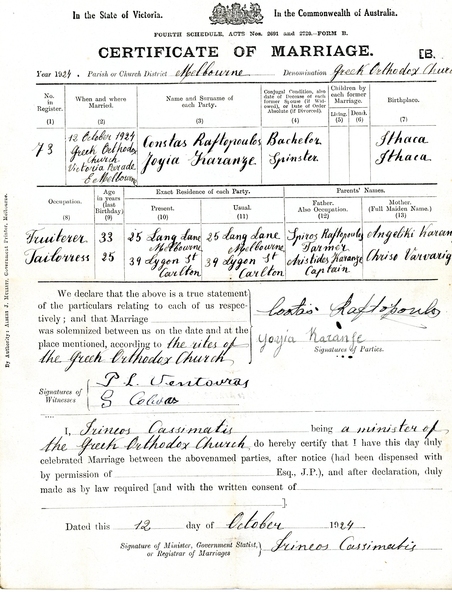 In the State of Victoria. In the Commonwealth of Australia.
FOURTH SCHEDULE, ACTS Nos. 2691 and 2720.—FORM B.
CERTIFICATE OF MARRIAGE. [B.
Year 1924. Parish or Church District Melbourne Denomination Greek Orthodox Church
No. in Register. When and where Married. Name and Surname of each Party. Conjugal Condition, also date of Decease of each former Spouse (if Widowed), or Date of Order Absolute (if Divorced). Children by each former Marriage. Birthplace.
Living. Dead.
(1) (2) (3) (4) (5) (6) (7)
73 12 October 1924 Constas Raftopoulos Bachelor Ithaca
Greek Orthodox Church Joyia Karanze Spinster Ithaca
Victoria Parade
E. Melbourne
Occupation. Age in years (last Birthday) Exact Residence of each Party. Parents' Names.
Present. Usual. Father. Also Occupation. Mother. (Full Maiden Name.)
(8) (9) (10) (11) (12) (13)
Fruiterer 33 25 Lang Lane Melbourne 25 Lang Lane Melbourne Spiros Raftopoulos Farmer Angeliki Karan
Tailoress 25 39 Lygon St Carlton 39 Lygon St Carlton Aristides Karanze Captain Chriso Varvarig
We declare that the above is a true statement
of the particulars relating to each of us respec-
tively; and that Marriage
was solemnized between us on the date and at the
place mentioned, according to the rites of
the Greek Orthodox Church
Costas Raftopoulos
Yoyia Karanze
Signatures of Parties.
Signatures of Witnesses
P L Ventouras
G Colivas
I, Irineos Cassimatis being a minister of
the Greek Orthodox Church, do hereby certify that I have this day duly
celebrated Marriage between the abovenamed parties, after notice (had been dispensed with
by permission of Esq., J.P.), and after declaration, duly
made as by law required [and with the written consent of
].
Dated this 12 day of October 1924
Signature of Minister, Government Statist, or Registrar of Marriages Irineos Cassimatis